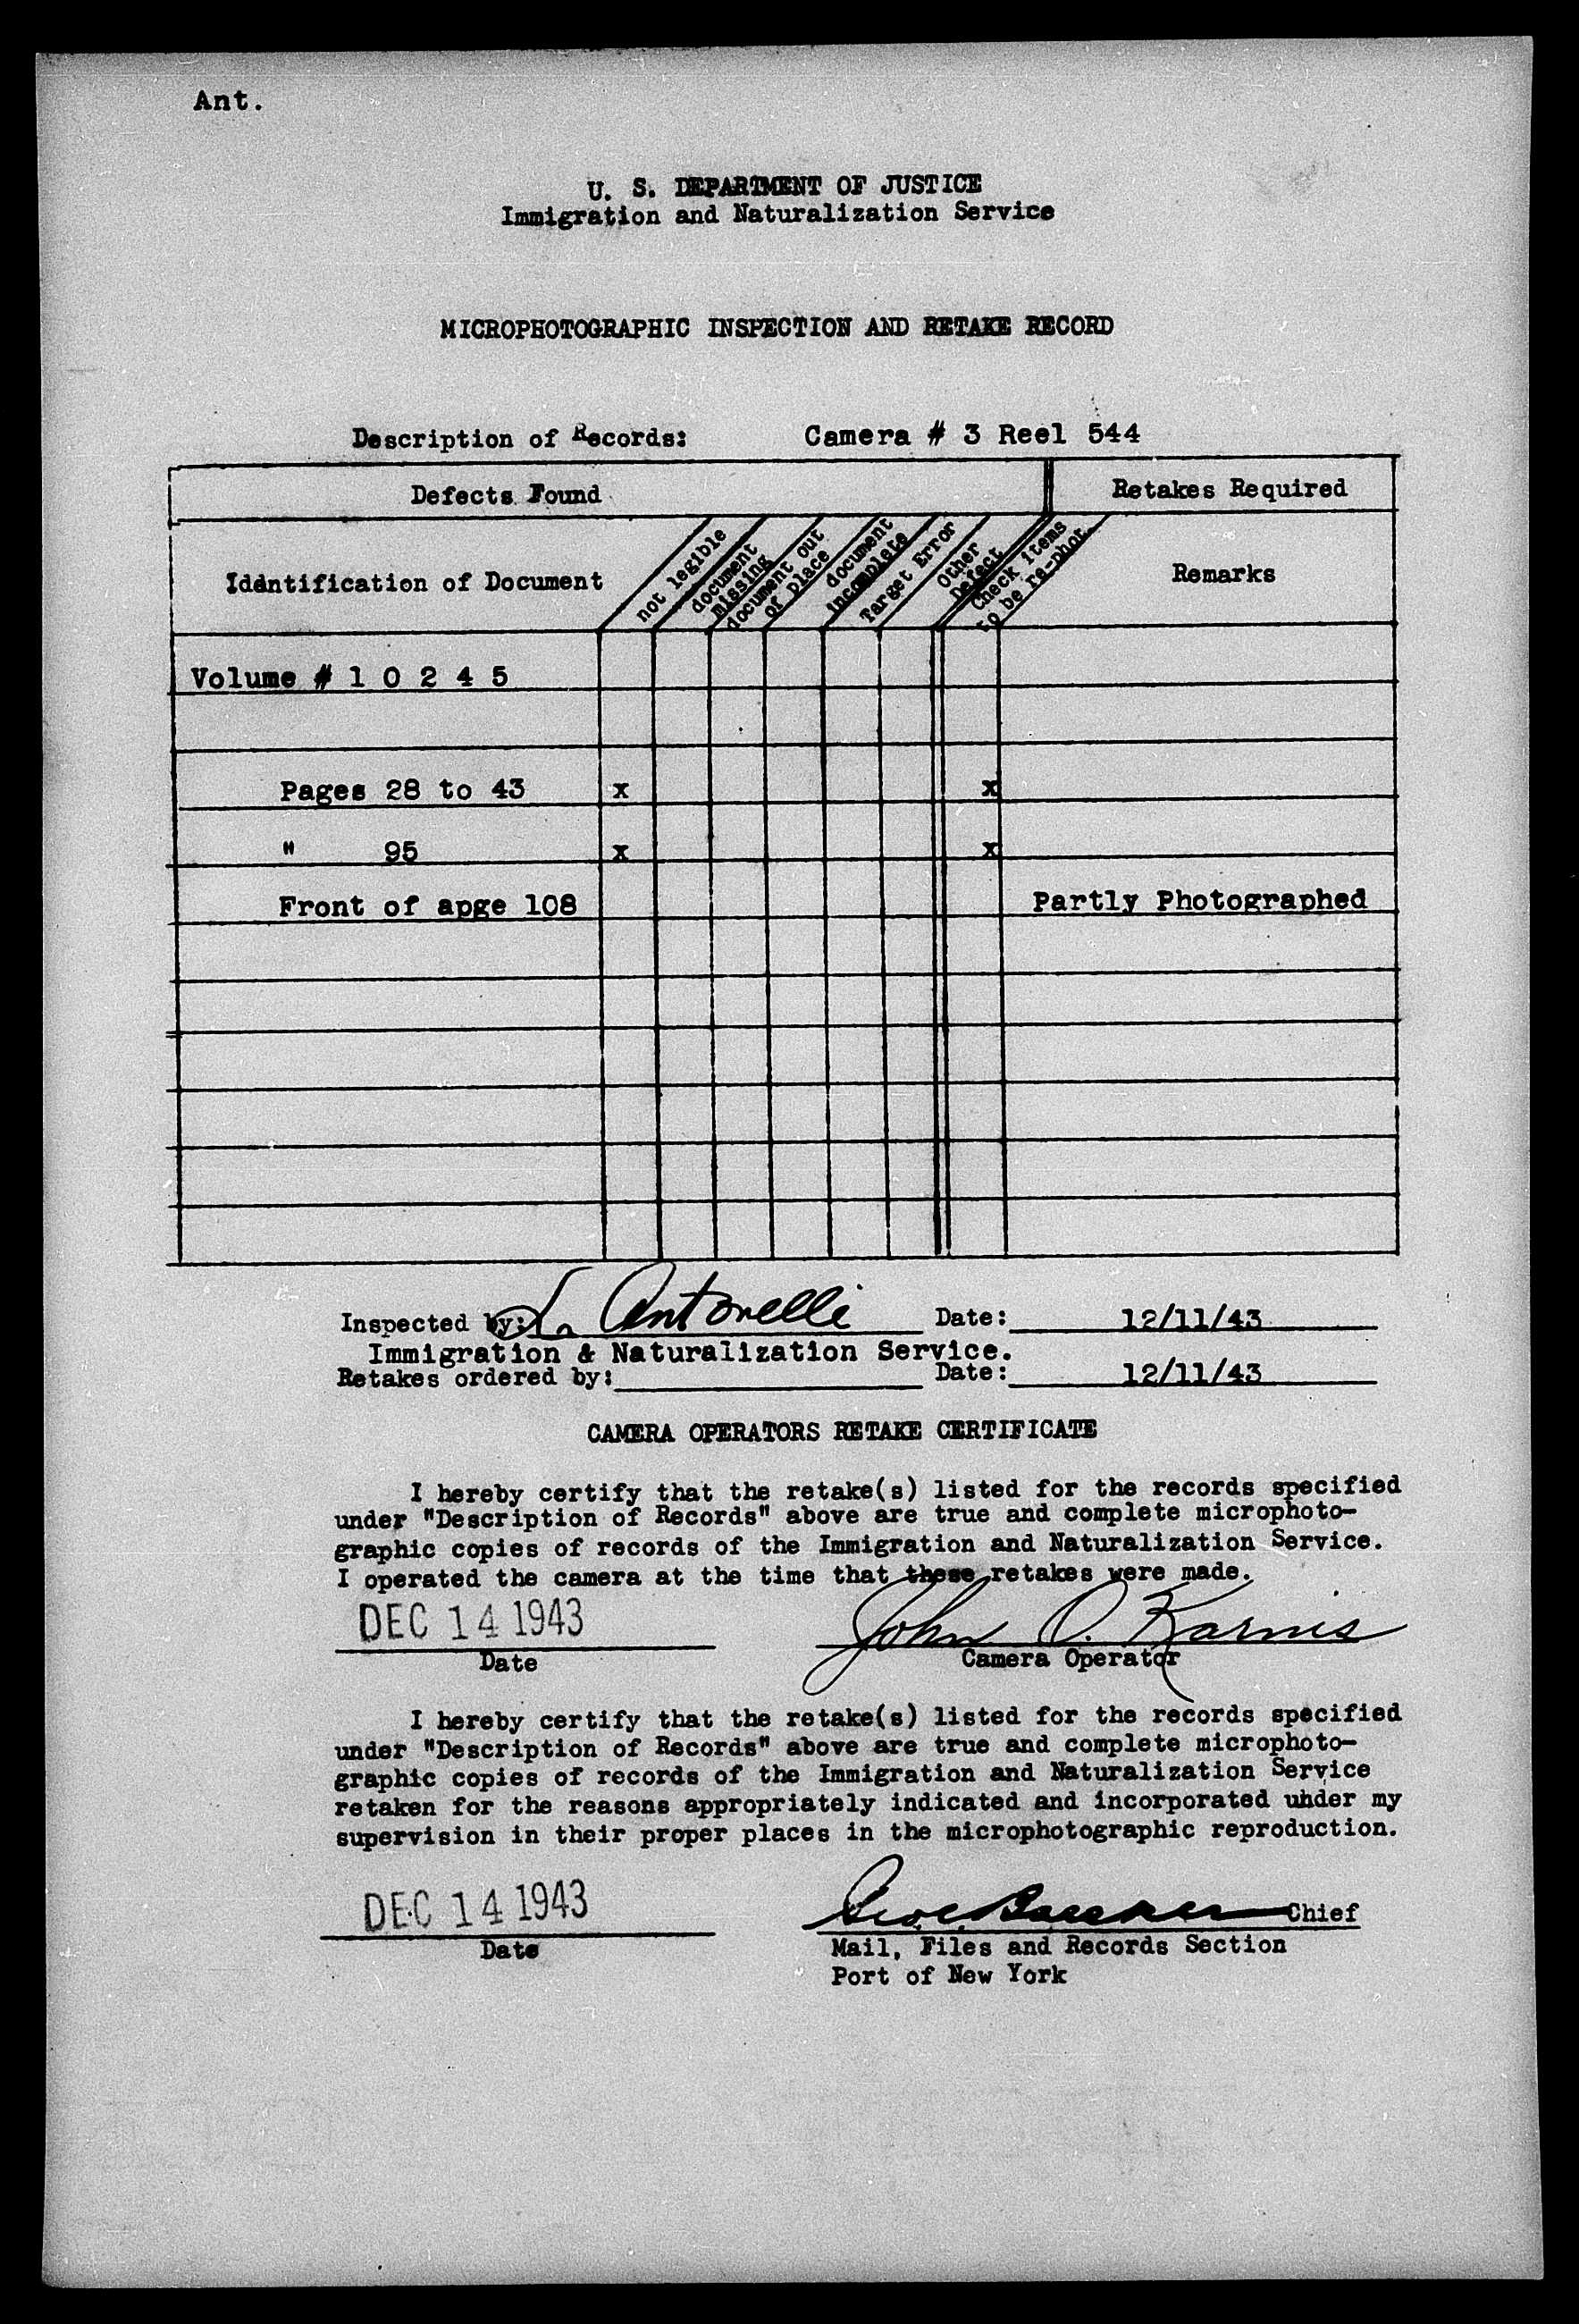 Ant.
U. S. DEPARTMENT OF JUSTICE
Immigration and Naturalization Service
MICROPHOTOGRAPHIC INSPECTION AND RETAKE RECORD
Description of Records: Camera # 3 Reel 544
Defects Found Retakes Required
Iddntification of Document
not legible
document
missing
document out
of place
document
incomplete
Target Error
Other
Defect
Check items
to be re-phot.
Remarks
Volume # 1 0 2 4 5
Pages 28 to 43 x x
" 95 x x
Front of apge 108 Partly Photographed
Inspected by: L. Antonelli Date: 12/11/43
Immigration & Naturalization Service.
Retakes ordered by: Date: 12/11/43
CAMERA OPERATORS RETAKE CERTIFICATE
I hereby certify that the retake(s) listed for the records specified
under "Description of Records" above are true and complete microphoto-
graphic copies of records of the Immigration and Naturalization Service.
I operated the camera at the time that these retakes were made.
DEC 14 1943 John O. Karnis
Date Camera Operator
I hereby certify that the retake(s) listed for the records specified
under "Description of Records" above are true and complete microphoto-
graphic copies of records of the Immigration and Naturalization Service
retaken for the reasons appropriately indicated and incorporated uhder my
supervision in their proper places in the microphotographic reproduction.
DEC 14 1943 Chief
Date Mail, Files and Records Section
Port of New York